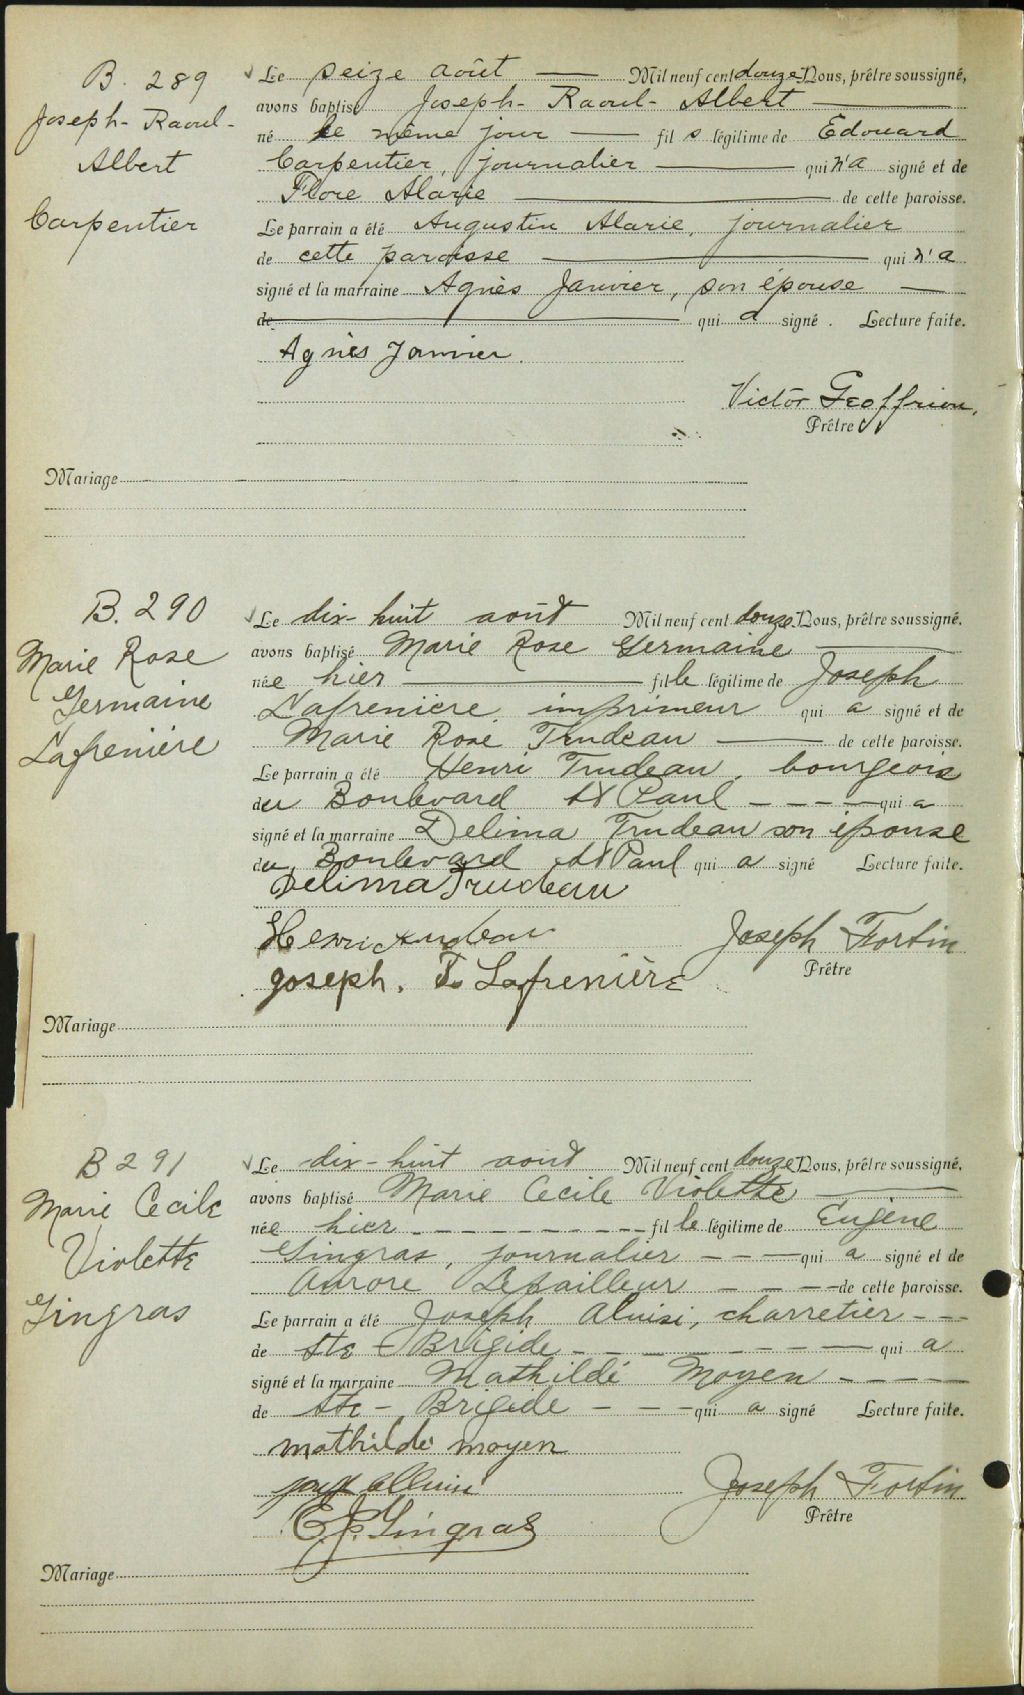 B. 289
Joseph- Raoul-
Albert
Carpentier
Le seize août — Mil neuf cent douze Nous, prêtre soussigné,
avons baptisé Joseph- Raoul- Albert —
né le même jour — fil s légitime de Edouard
Carpentier, journalier — qui n'a signé et de
Flore Alarie — de cette paroisse.
Le parrain a été Augustin Alarie, journalier
de cette paroisse — qui n'a
signé et la marraine Agnès Janvier, son épouse —
de — qui a signé. Lecture faite.
Agnès Janvier.
Victor Geoffrion,
Prêtre
Mariage
B. 290
Marie Rose
Germaine
Lafrenière
Le dix-huit août Mil neuf cent douze Nous, prêtre soussigné,
avons baptisé Marie Rose Germaine —
née hier — fille légitime de Joseph
Lafrenière, imprimeur qui a signé et de
Marie Rose Trudeau — de cette paroisse.
Le parrain a été Henri Trudeau, bourgeois
du Boulevard St Paul - - - - qui a
signé et la marraine Delima Trudeau son épouse
du Boulevard St Paul qui a signé Lecture faite.
Delima Trudeau
Henri Trudeau
Joseph Fortin
Prêtre
Joseph. T. Lafrenière
Mariage
B 291
Marie Cecile
Violette
Gingras
Le dix-huit août Mil neuf cent douze Nous, prêtre soussigné,
avons baptisé Marie Cecile Violette —
née hier - - - - - - - fille légitime de Eugène
Gingras, journalier - - - qui a signé et de
Aurore Lepailleur - - - de cette paroisse.
Le parrain a été Joseph Aluisi, charretier - - -
de Ste - Brigide - - - - - - - qui a
signé et la marraine Mathilde Moyen - - - -
de Ste - Brigide - - - qui a signé Lecture faite.
mathilde moyen
Joseph Fortin
Prêtre
E. J. Gingras
Mariage